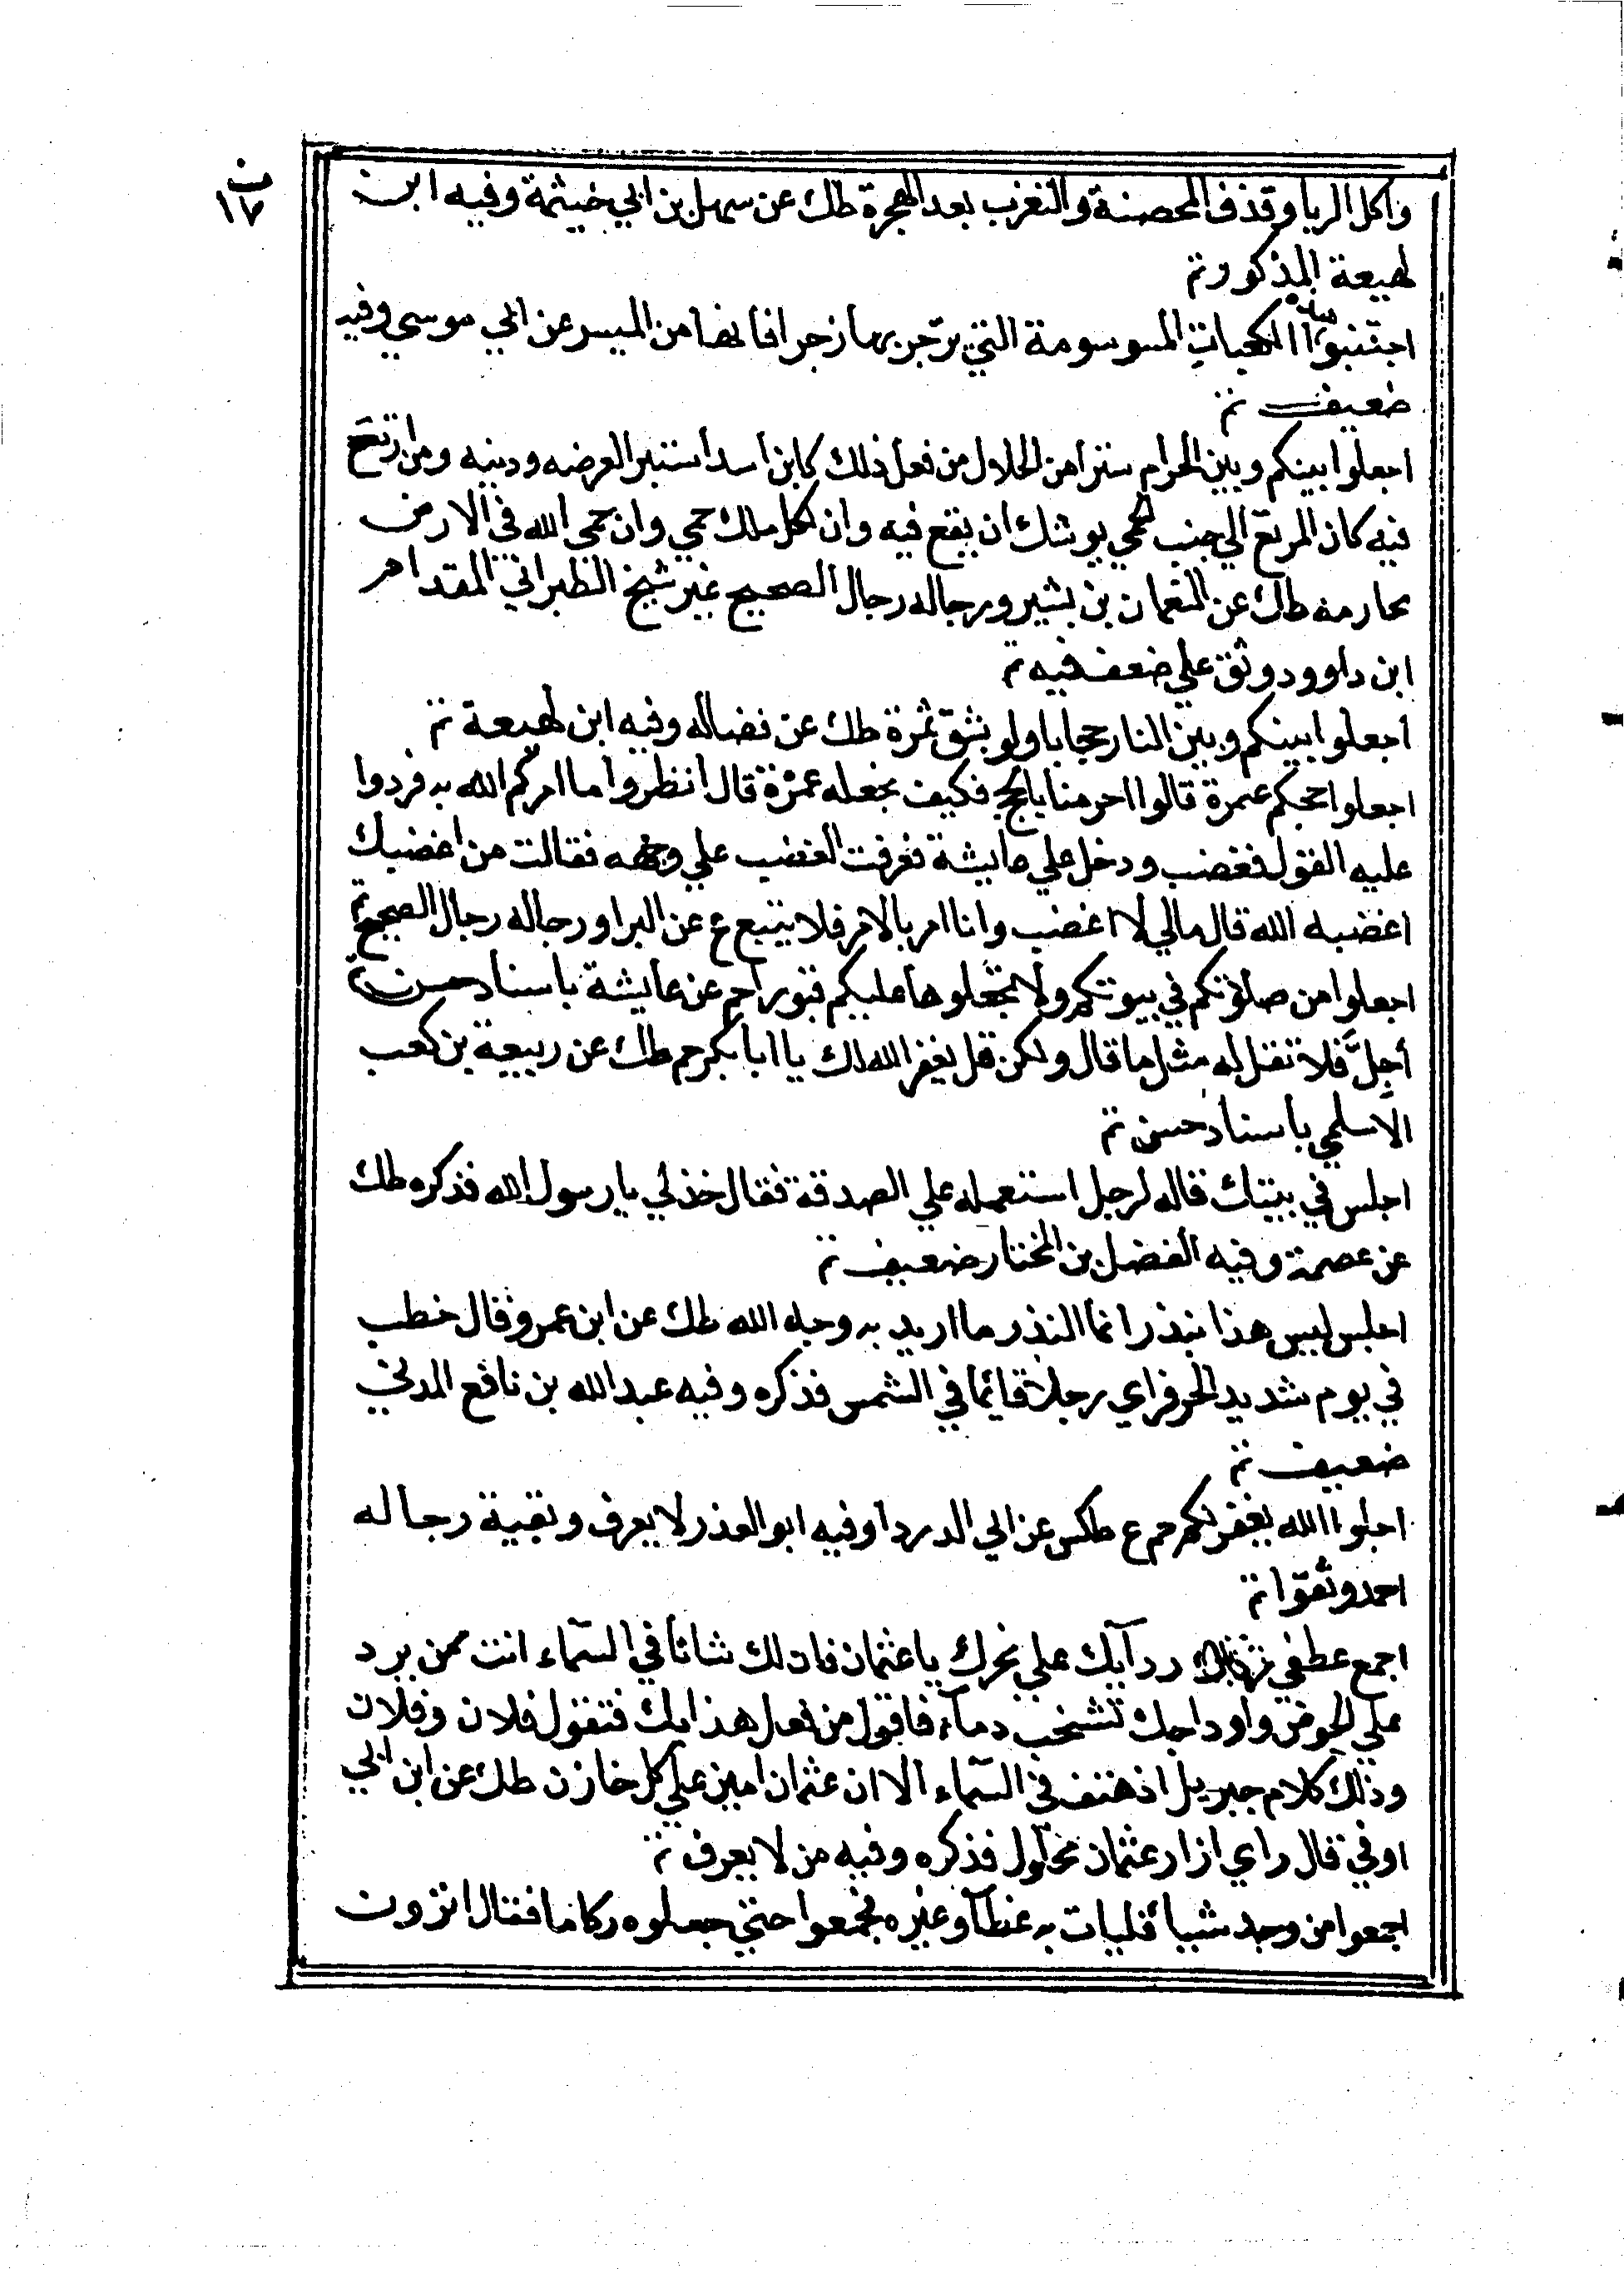 ن
١٧
واكل الربا وقذف المحصنة والتغرب بعد الهجرة طك عن سهل بن ابي خيثمة وفيه ابن
لهيعة المذكور
اجتنبوا هذه الكعبات الموسومة التي يزجر بها زجرا فانها من الميسر عن ابي موسي وفيه
ضعيف
اجعلوا بينكم وبين الحرام سترا من الحلال من فعل ذلك كان اسد استبرا لعرضه ودينه ومن ارتع
فيه كان المرتع الي جنب الحمي يوشك ان يقع فيه وان لكل ملك حمي وان حمي الله في الارض
محارمه طك عن النعمان بن بشير ورجاله رجال الصحيح غير شيخ الطبراني المقدام
ابن داوود وثق علي ضعف فيه
اجعلوا بينكم وبين النار حجابا ولو بشق تمرة طك عن فضاله وفيه ابن لهيعة
اجعلوا حجكم عمرة قالوا احرمنا بالحج فكيف نجعله عمرة قال انظروا ما امركم الله به فردوا
عليه القول فغضب ودخل علي عايشة فعرفت الغضب علي وجهه فقالت من اغضبك
اغضبه الله قال مالي لا اغضب وانا امر بالامر فلا يتبع ع عن البرا ورجاله رجال الصحيح
اجعلوا من صلاتكم في بيوتكم ولا تجعلوها عليكم قبورا حم عن عايشة باسناد حسن
أجل فلا تقل له مثل ما قال ولكن قل يغفر الله لك يا ابا بكر حم طك عن ربيعة بن كعب
الاسلمي باسناد حسن
اجلس في بيتك قاله لرجل استعمله علي الصدقة فقال خذ لي يا رسول الله فذكره طك
عن عصمة وفيه الفضل بن المختار ضعيف
اجلس ليس هذا بنذر انما النذر ما اريد به وجه الله طك عن ابن عمرو قال خطب
في يوم شديد الحر فراي رجلا قائما في الشمس فذكره وفيه عبد الله بن نافع المدني
ضعيف
اجلوا الله يغفر لكم حم ع طكس عن ابي الدرداء وفيه ابو العذر لا يعرف وبقية رجاله
احمد وثقوا
اجمع عطفي ردآيك علي نحرك يا عثمان فان لك شانا في السماء انت ممن يرد
علي الحوض واوداجك تشخب دماء فاقول من فعل هذا بك فتقول فلان وفلان
وذلك كلام جبريل اذ هتف في السماء الا ان عثمان امين علي كل خازن طك عن ابن ابي
اوفي قال راي ازار عثمان محلول فذكره وفيه من لا يعرف
اجمعوا من وجد شيا فليات به عظما وغيره فجمعوا حتي جعلوه ركاما فقال اترون